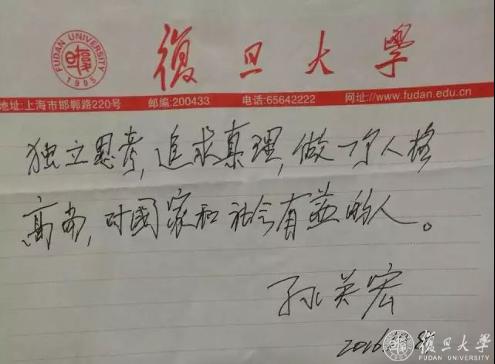 FUDAN UNIVERSITY
1905
復旦大學
地址:上海市邯郸路220号 邮编:200433 电话:65642222 网址://www.fudan.edu.cn
独立思考,追求真理,做一个人格
高尚,对国家和社会有益的人。
孙英宏
2016
復旦大學
FUDAN UNIVERSITY